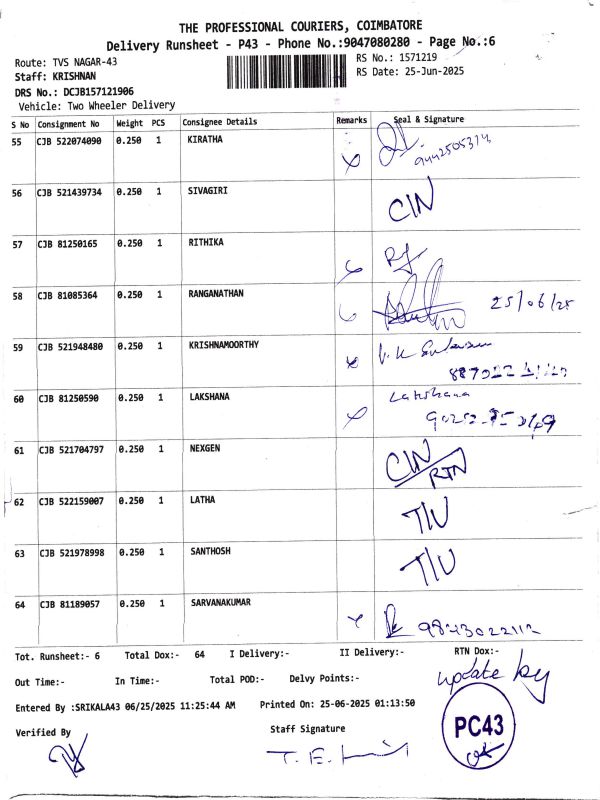 THE PROFESSIONAL COURIERS, COIMBATORE
Delivery Runsheet - P43 - Phone No.:9047080280 - Page No.:6
Route: TVS NAGAR-43
RS No.: 1571219
Staff: KRISHNAN
RS Date: 25-Jun-2025
DRS No.: DCJB157121906
Vehicle: Two Wheeler Delivery
S No Consignment No Weight PCS Consignee Details Remarks Seal & Signature
55 CJB 522074090 0.250 1 KIRATHA
56 CJB 521439734 0.250 1 SIVAGIRI CIN
57 CJB 81250165 0.250 1 RITHIKA
58 CJB 81085364 0.250 1 RANGANATHAN 25/06/25
59 CJB 521948480 0.250 1 KRISHNAMOORTHY
60 CJB 81250590 0.250 1 LAKSHANA Lakshana
61 CJB 521704797 0.250 1 NEXGEN CIN/RTN
62 CJB 522159007 0.250 1 LATHA
63 CJB 521978998 0.250 1 SANTHOSH
64 CJB 81189057 0.250 1 SARVANAKUMAR
Tot. Runsheet:- 6 Total Dox:- 64 I Delivery:- II Delivery:- RTN Dox:-
update by
Out Time:- In Time:- Total POD:- Delvy Points:-
Entered By :SRIKALA43 06/25/2025 11:25:44 AM Printed On: 25-06-2025 01:13:50
PC43
Verified By Staff Signature